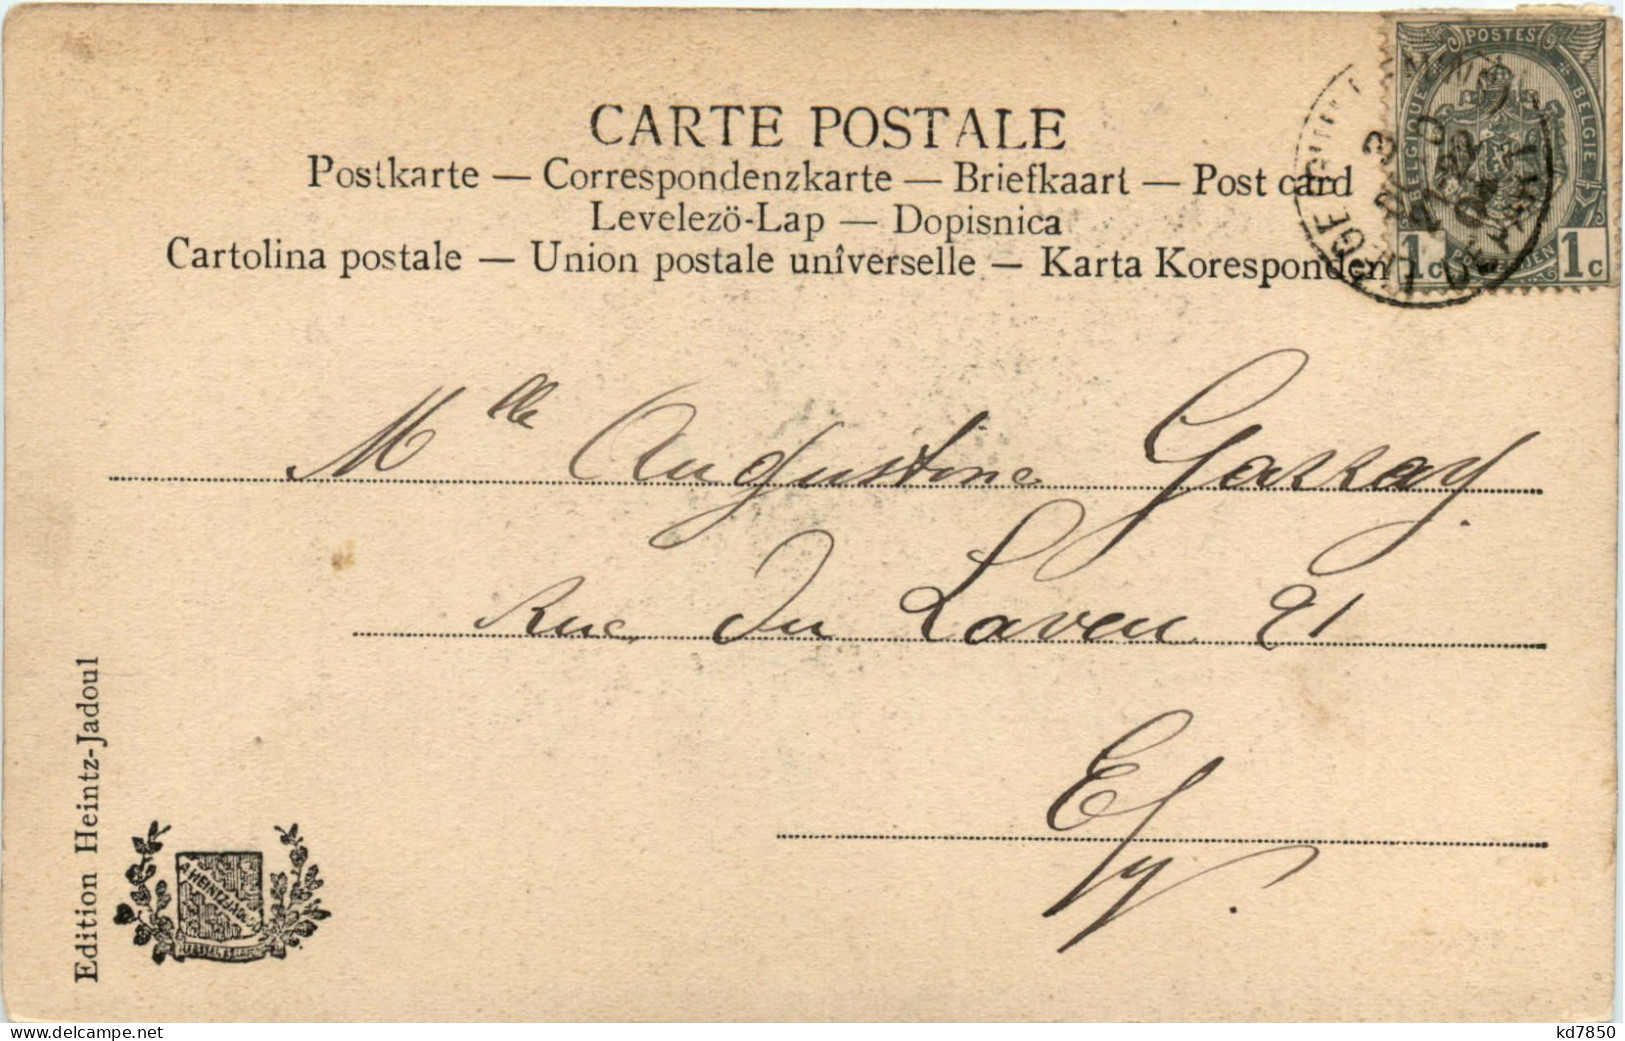 CARTE POSTALE
Postkarte — Correspondenzkarte — Briefkaart — Post card
Levelezö-Lap — Dopisnica
Cartolina postale — Union postale unîverselle — Karta Koresponden
POSTES
BELGIQUE
BELGIE
1c
1c
LIEGE GUILLEMINS
3 AOUT
22
DEPART
Mlle Augustine Garray.
Rue Du Laveu 21
E/y.
Edition Heintz-Jadoul
A HEINTZ JADOUL
www.delcampe.net
kd7850